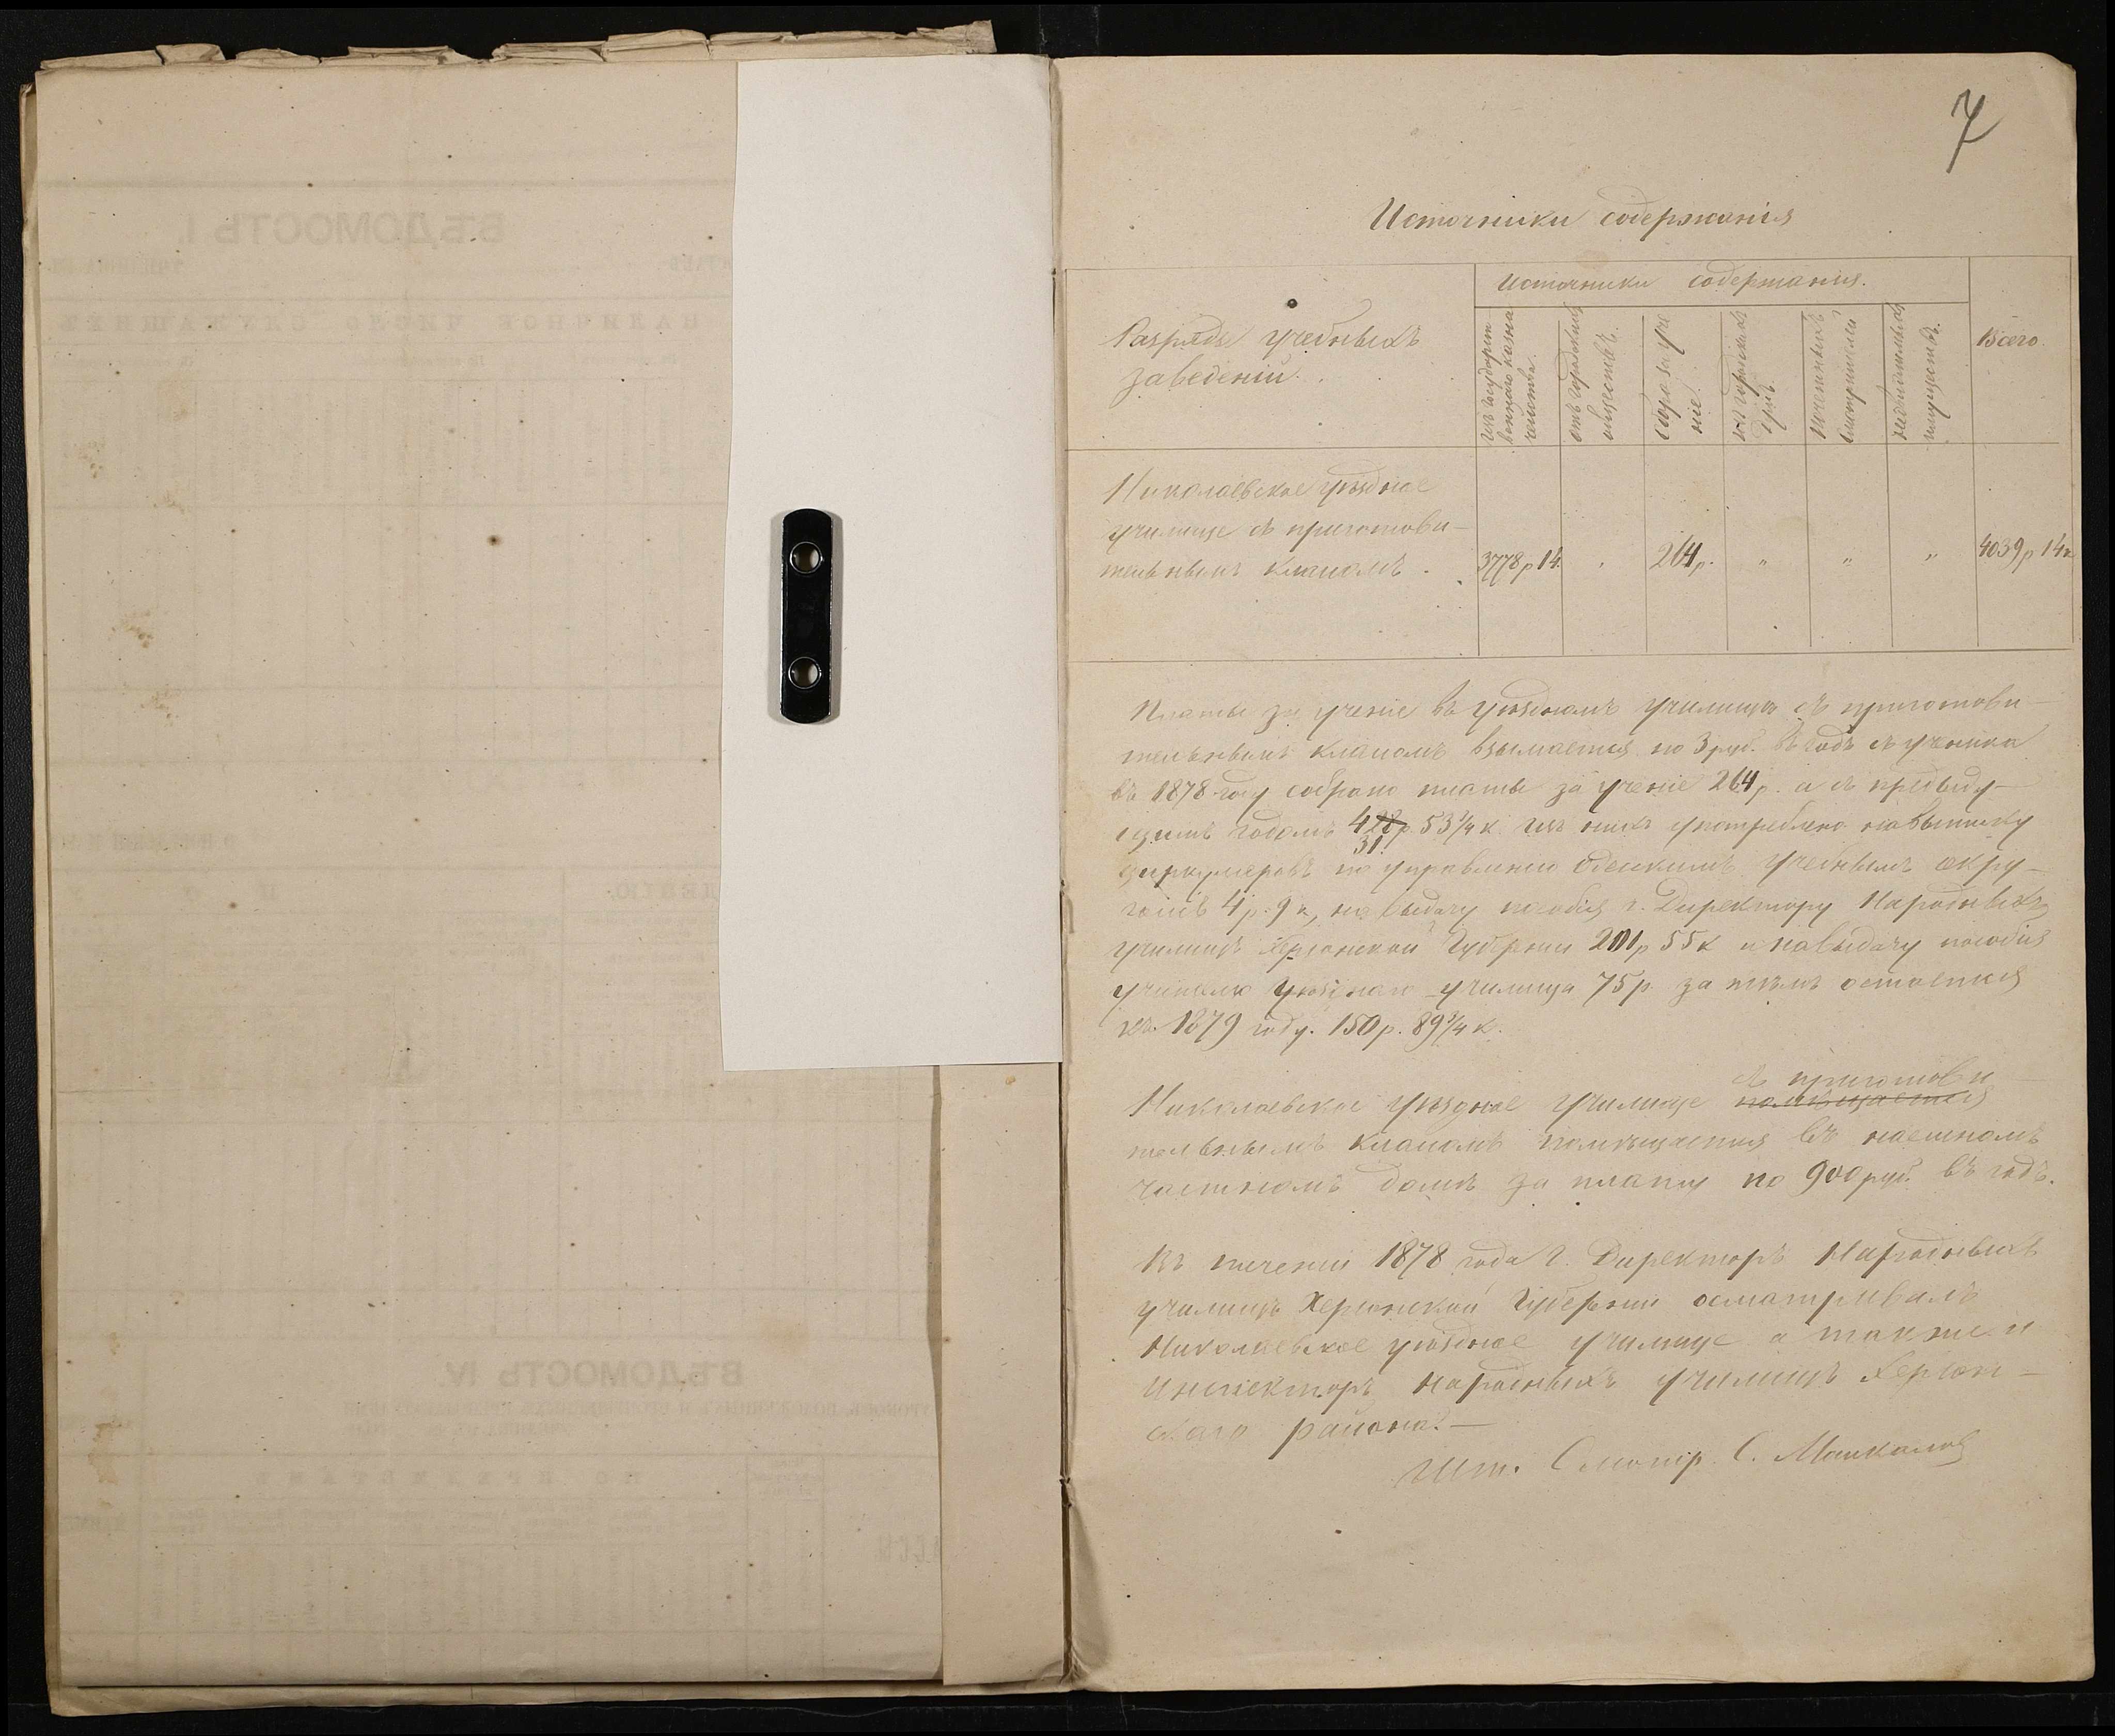 7
Источники содержанія
Разряды учебныхъ
заведеній.
Источники содержанія.
изъ государст-
веннаго казна-
чейства.
отъ городскихъ
обществъ.
сбора за уче
ніе.
Почетныхъ
смотрителей
недвижимыхъ
имуществъ.
Всего.
Николаевское уѣздное
училище съ приготови-
тельнымъ классомъ.
3778 р 14
264 р.
"
"
"
4039 р 14 к
Платы за ученіе въ уѣздномъ училищѣ съ приготови-
тельнымъ классомъ взымается по 3 руб. въ годъ съ ученика
въ 1878 году собрано платы за ученіе 264 р. а съ предыду-
щимъ годомъ 428 р 53 3/4 к изъ нихъ употреблено на выписку
31
циркуляровъ по управленію Одесскимъ учебнымъ окру-
гомъ 4 р. 9 к, на выдачу пособія г. Директору Народныхъ
училищъ Херсонской Губерніи 201 р 55 к и на выдачу пособія
учителю уѣзднаго училища 75 р за тѣмъ остается
къ 1879 году. 150 р. 89 3/4 к.
съ приготови-
Николаевское уѣздное училище помѣщается
тельнымъ классомъ помѣщается въ наемномъ
частномъ домѣ за плату по 900 руб въ годъ.
Въ теченіи 1878 года Г. Директоръ Народныхъ
училищъ Херсонской Губерніи осматривалъ
Николаевское уѣздное училище а также и
Инспекторъ народныхъ училищъ Херсон-
скаго района.—
Шт. Смотр. С.
ВѢДОМОСТЬ I.
ВѢДОМОСТЬ IV.